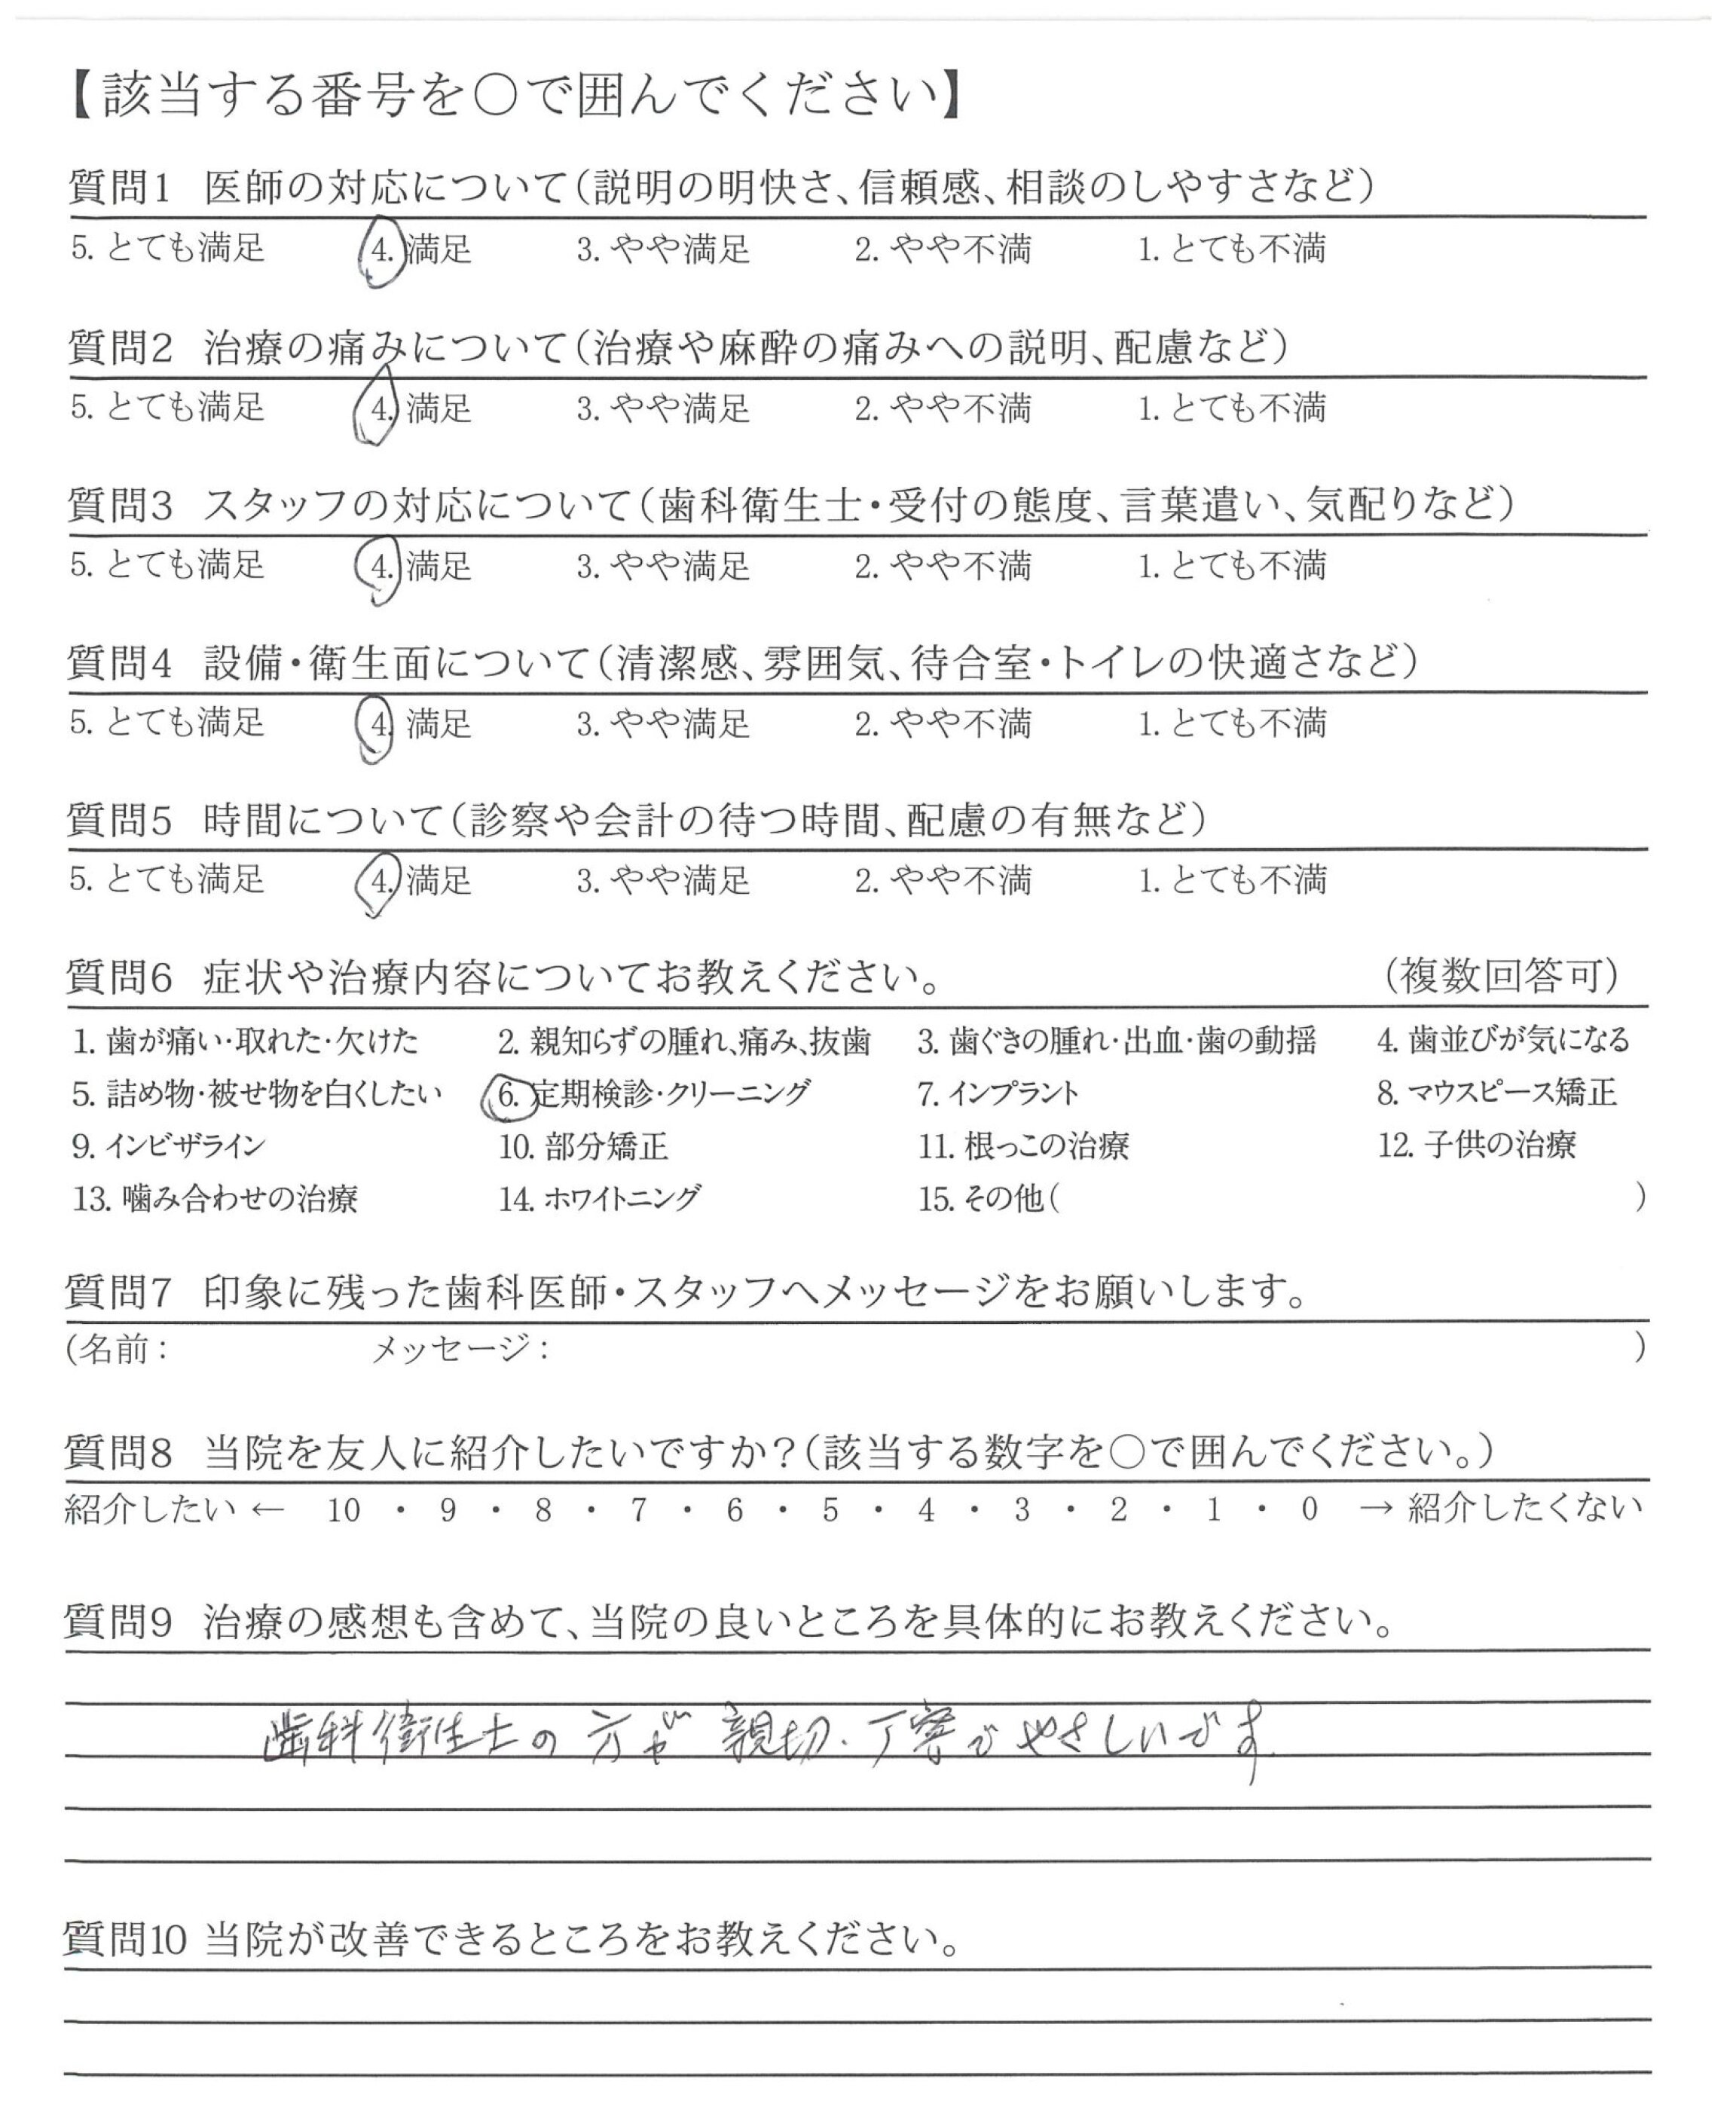 【該当する番号を〇で囲んでください】
質問1 医師の対応について(説明の明快さ、信頼感、相談のしやすさなど)
5. とても満足 4. 満足 3. やや満足 2. やや不満 1. とても不満
質問2 治療の痛みについて(治療や麻酔の痛みへの説明、配慮など)
5. とても満足 4. 満足 3. やや満足 2. やや不満 1. とても不満
質問3 スタッフの対応について(歯科衛生士・受付の態度、言葉遣い、気配りなど)
5. とても満足 4. 満足 3. やや満足 2. やや不満 1. とても不満
質問4 設備・衛生面について(清潔感、雰囲気、待合室・トイレの快適さなど)
5. とても満足 4. 満足 3. やや満足 2. やや不満 1. とても不満
質問5 時間について(診察や会計の待つ時間、配慮の有無など)
5. とても満足 4. 満足 3. やや満足 2. やや不満 1. とても不満
質問6 症状や治療内容についてお教えください。 (複数回答可)
1. 歯が痛い・取れた・欠けた 2. 親知らずの腫れ、痛み、抜歯 3. 歯ぐきの腫れ・出血・歯の動揺 4. 歯並びが気になる
5. 詰め物・被せ物を白くしたい 6. 定期検診・クリーニング 7. インプラント 8. マウスピース矯正
9. インビザライン 10. 部分矯正 11. 根っこの治療 12. 子供の治療
13. 噛み合わせの治療 14. ホワイトニング 15. その他( )
質問7 印象に残った歯科医師・スタッフへメッセージをお願いします。
(名前: メッセージ: )
質問8 当院を友人に紹介したいですか?(該当する数字を〇で囲んでください。)
紹介したい ← 10 ・ 9 ・ 8 ・ 7 ・ 6 ・ 5 ・ 4 ・ 3 ・ 2 ・ 1 ・ 0 → 紹介したくない
質問9 治療の感想も含めて、当院の良いところを具体的にお教えください。
歯科衛生士の方が親切、丁寧でやさしいです
質問10 当院が改善できるところをお教えください。